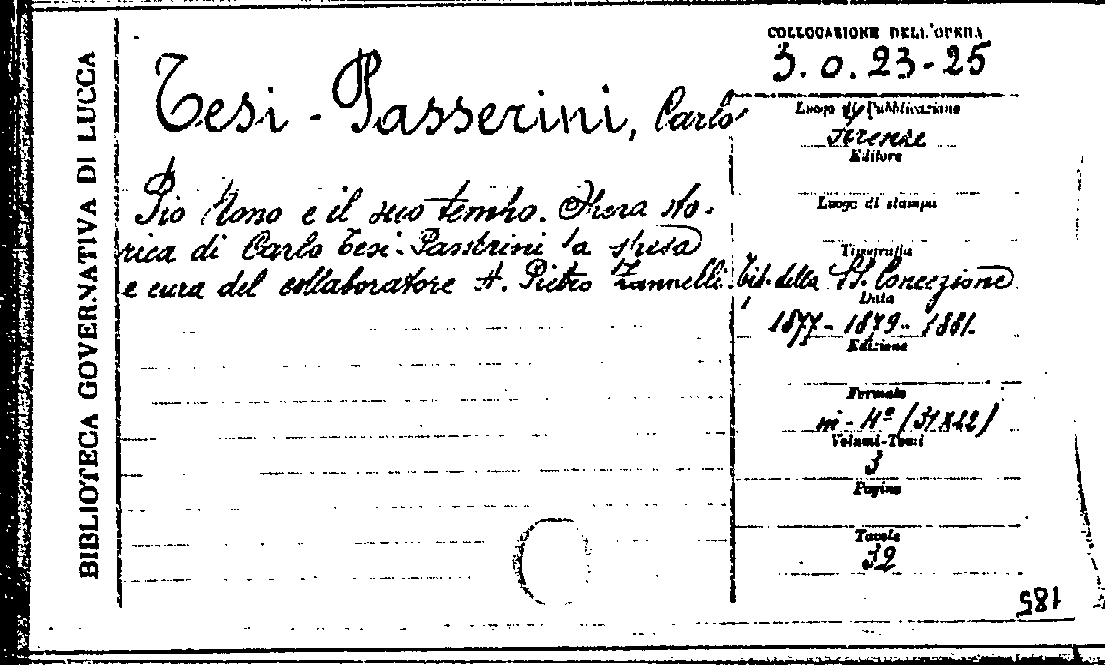 BIBLIOTECA GOVERNATIVA DI LUCCA
COLLOCAZIONE DELL'OPERA
3.0.23-25
Tesi-Passerini, Carlo
Pio Nono e il suo tempo. Opera sto-
rica di Carlo Tesi-Passerini a spesa
e cura del collaboratore A. Pietro Zannelli.
Luogo di Pubblicazione
Firenze
Editore
Luogo di stampa
Tipografia
Tip. della SS. Concezione
Data
1877-1879-1881.
Edizione
Formato
in-4º (31x22)
Volumi-Tomi
3
Pagine
Tavole
32